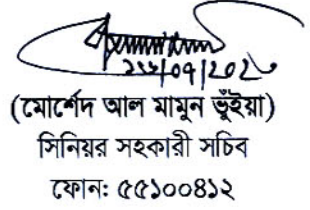 (মোর্শেদ আল মামুন ভূঁইয়া)
সিনিয়র সহকারী সচিব
ফোন: ৫৫১০০৪১২